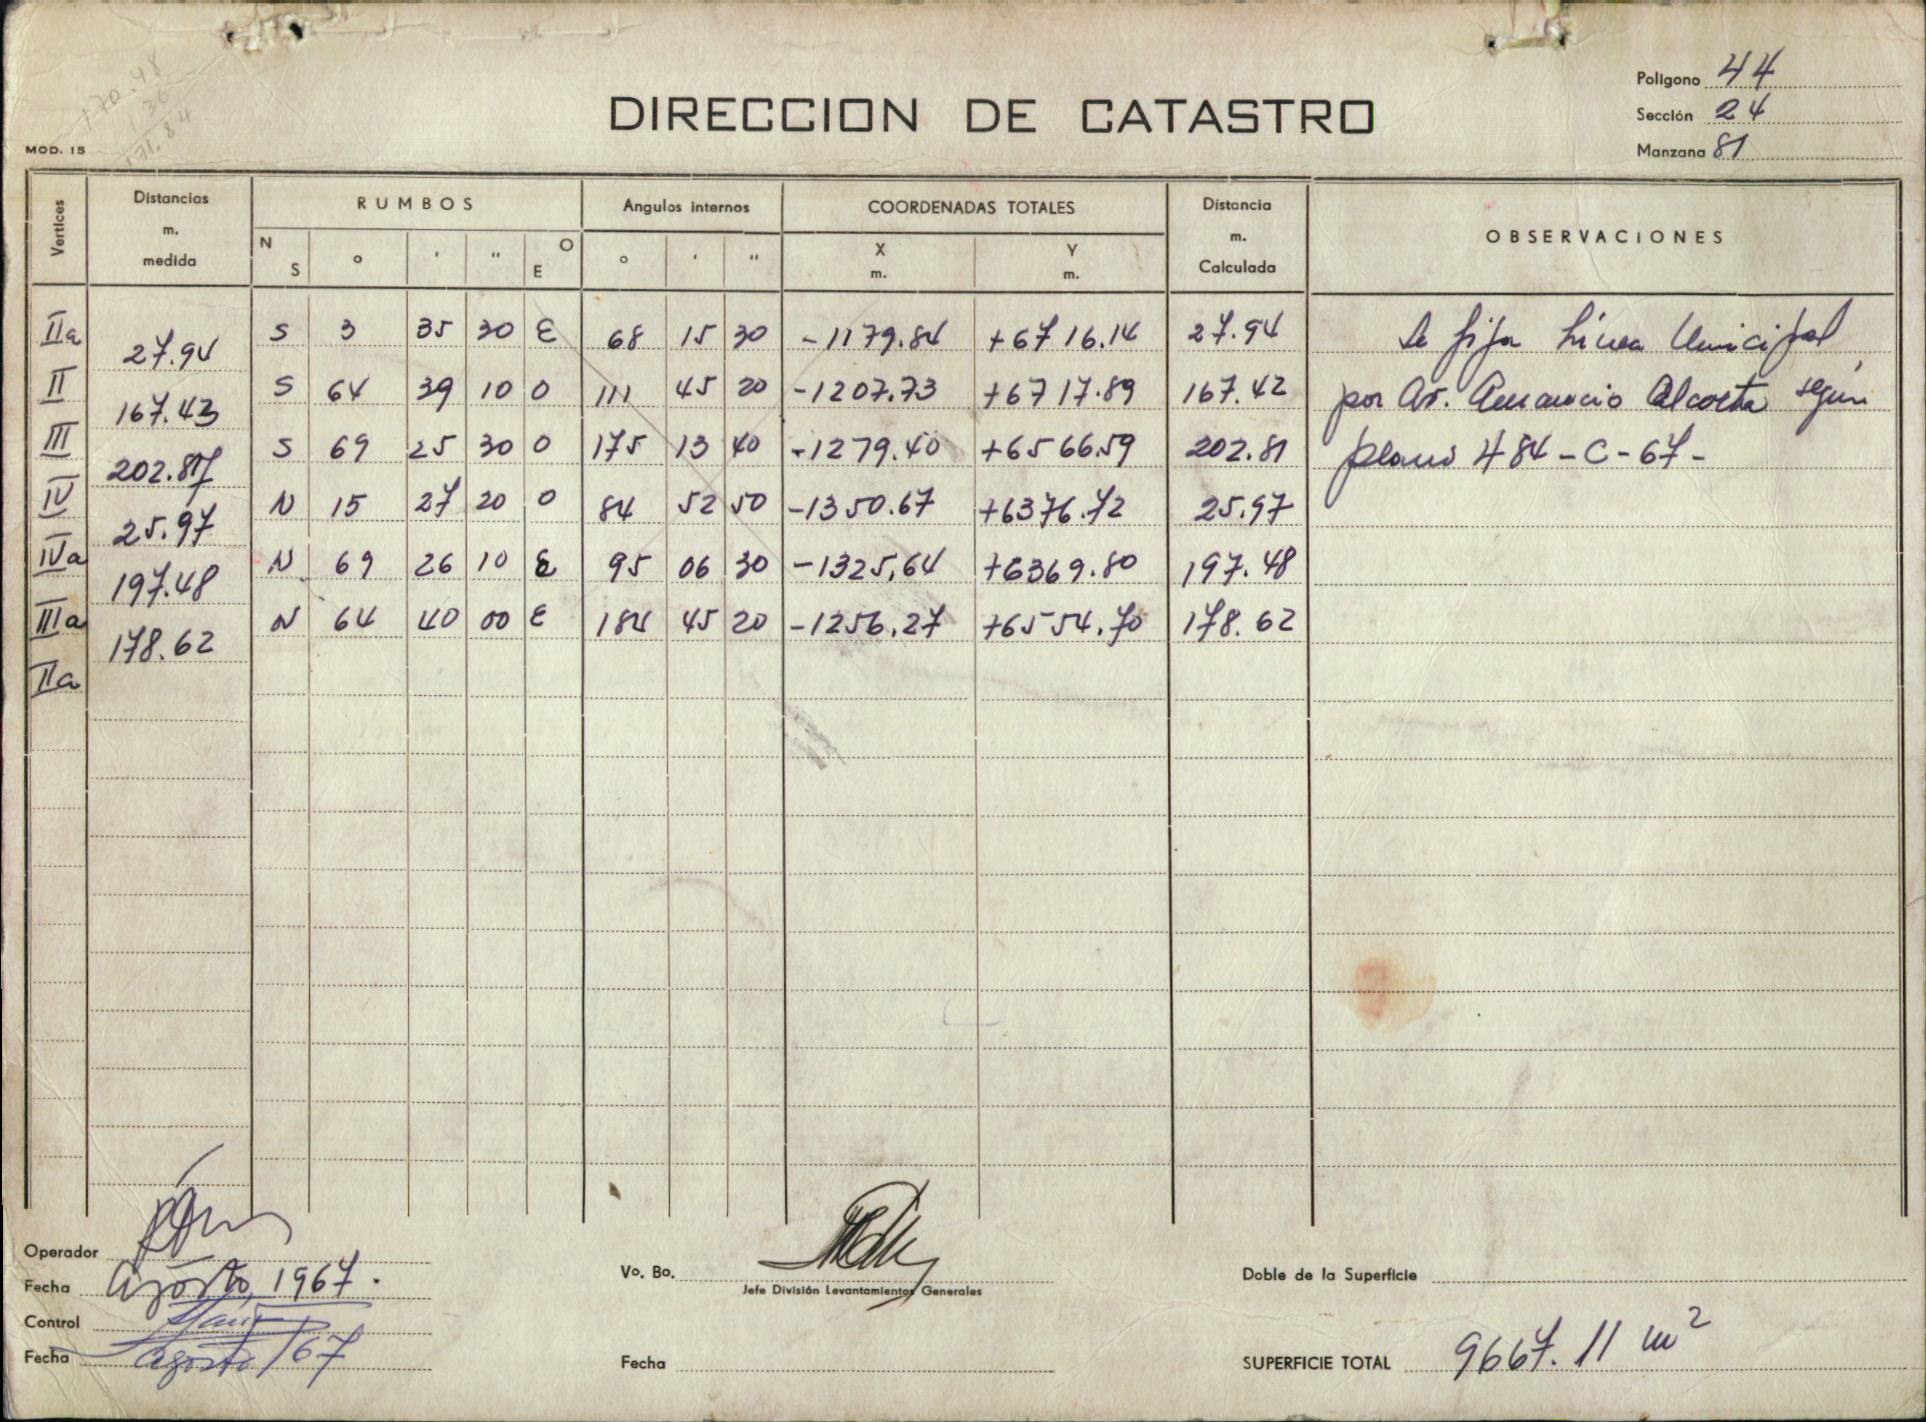 170.98
1 36
171.84
Poligono 44
DIRECCION DE CATASTRO
Sección 24
MOD. 15
Manzana 81
Vertices Distancias m. medida RUMBOS Angulos internos COORDENADAS TOTALES Distancia m. Calculada OBSERVACIONES
N S ° ' " O E ° ' " X m. Y m.
IIa S 3 35 30 E 68 15 30 -1179.84 +6716.14 27.94 Se fija Línea Municipal
27.94
II S 64 39 10 O 111 45 20 -1207.73 +6717.89 167.42 por Av. Amancio Alcorta según
167.43
III S 69 25 30 O 175 13 40 -1279.40 +6566.59 202.81 plano 484-C-67-
202.87
IV N 15 27 20 O 84 52 50 -1350.67 +6376.72 25.97
25.97
IVa N 69 26 10 E 95 06 30 -1325,64 +6369.80 197.48
197.48
IIIa N 64 40 00 E 184 45 20 -1256.27 +6554.70 178.62
178.62
IIa
Operador
Fecha Agosto, 1967.
Control
Fecha agosto/67
Vo. Bo.
Jefe División Levantamientos Generales
Fecha
Doble de la Superficie
SUPERFICIE TOTAL 9667.11 m²